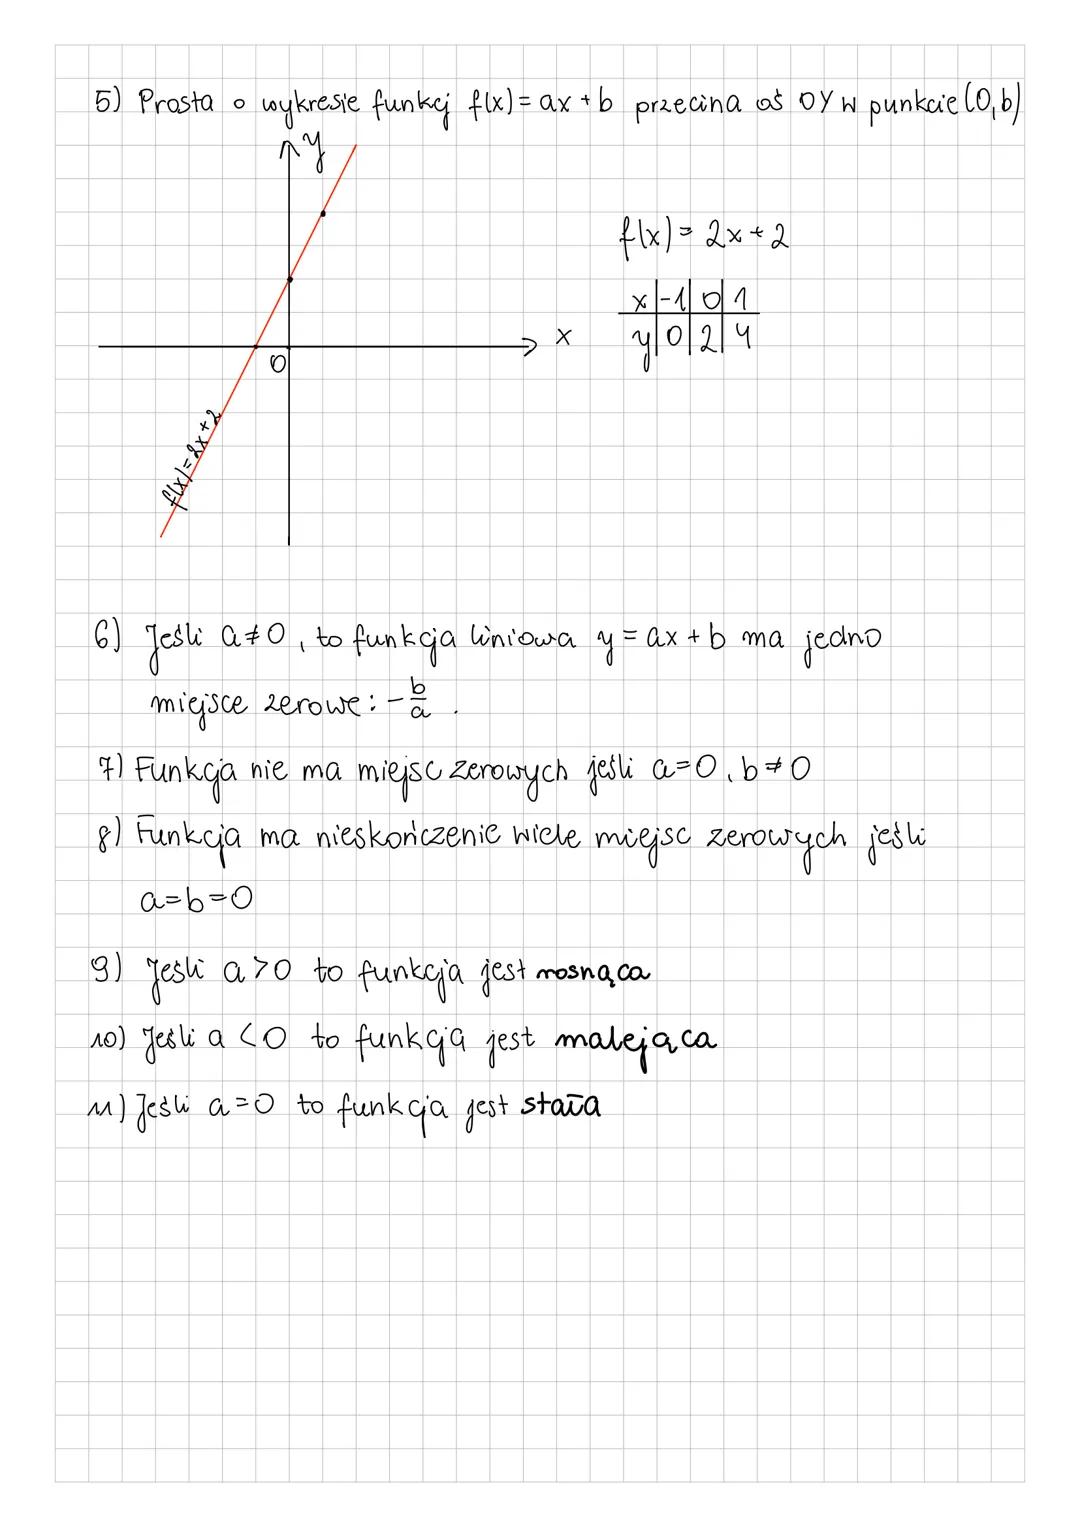 5) Prosta o wykresie funkcj f(x) = ax + b przecina oś OY w punkcie (0, b)
y
f(x) = 2x + 2
x | -1 | 0 | 1
y | 0 | 2 | 4
x
0
f(x) = 2x + 2
6) Jeśli a ≠ 0, to funkcja liniowa y = ax + b ma jedno
miejsce zerowe: -b/a .
7) Funkcja nie ma miejsc zerowych jeśli a = 0, b ≠ 0
8) Funkcja ma nieskończenie wiele miejsc zerowych jeśli
a = b = 0
9) Jeśli a > 0 to funkcja jest rosnąca
10) Jeśli a < 0 to funkcja jest malejąca
11) Jeśli a = 0 to funkcja jest stała